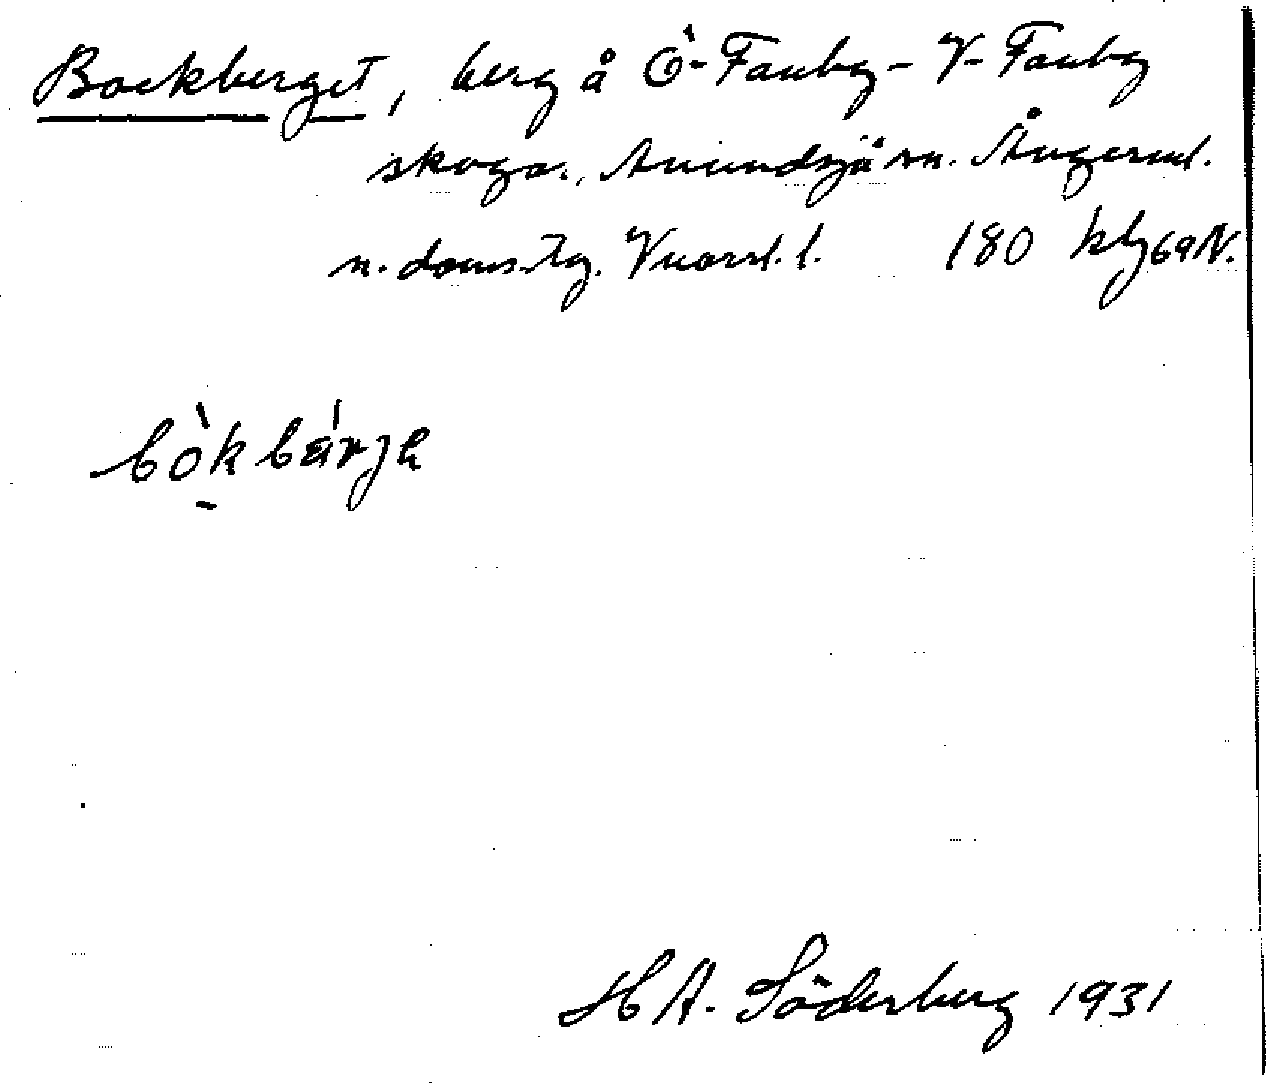 Bockberget, berg å Ö-Fanbg - V-Fanbg
skoga., Anundsjö sn. Ångerml.
n. doms.-tg. Vnorrl. l. 180 kbl 69 N.
bòkbárjɐ
H A. Söderberg 1931